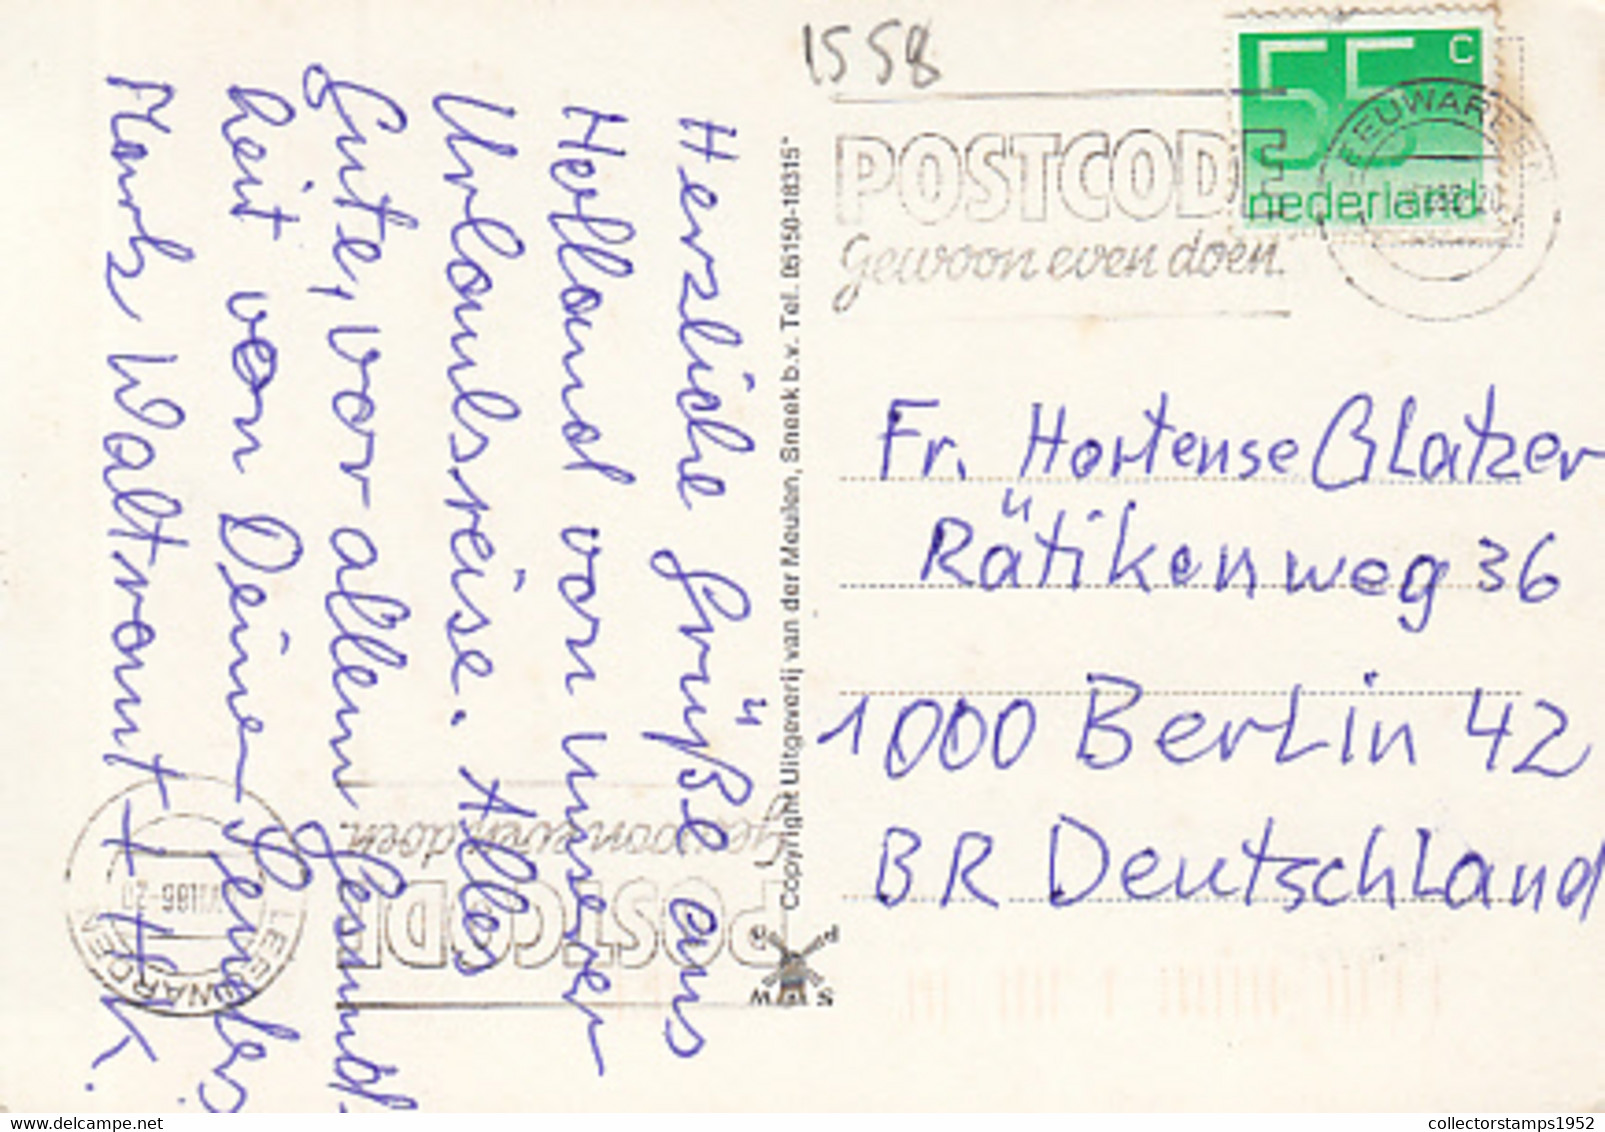 1558
55 c
nederland
LEEUWARDEN
POSTCODE
gewoon even doen.
Herzliche Grüße aus
Holland von unserer
Urlaubsreise. Alles
Gute, vor allem Gesund-
heit von Deiner
Waltraut + K.
Copyright Uitgeverij van der Meulen, Sneek b.v. Tel. 05150-18315*
Fr. Hortense Glatzer
Rätikonweg 36
1000 Berlin 42
BR Deutschland
POSTCODE
gewoon even doen.
LEEUWARDEN
collectorstamps1952